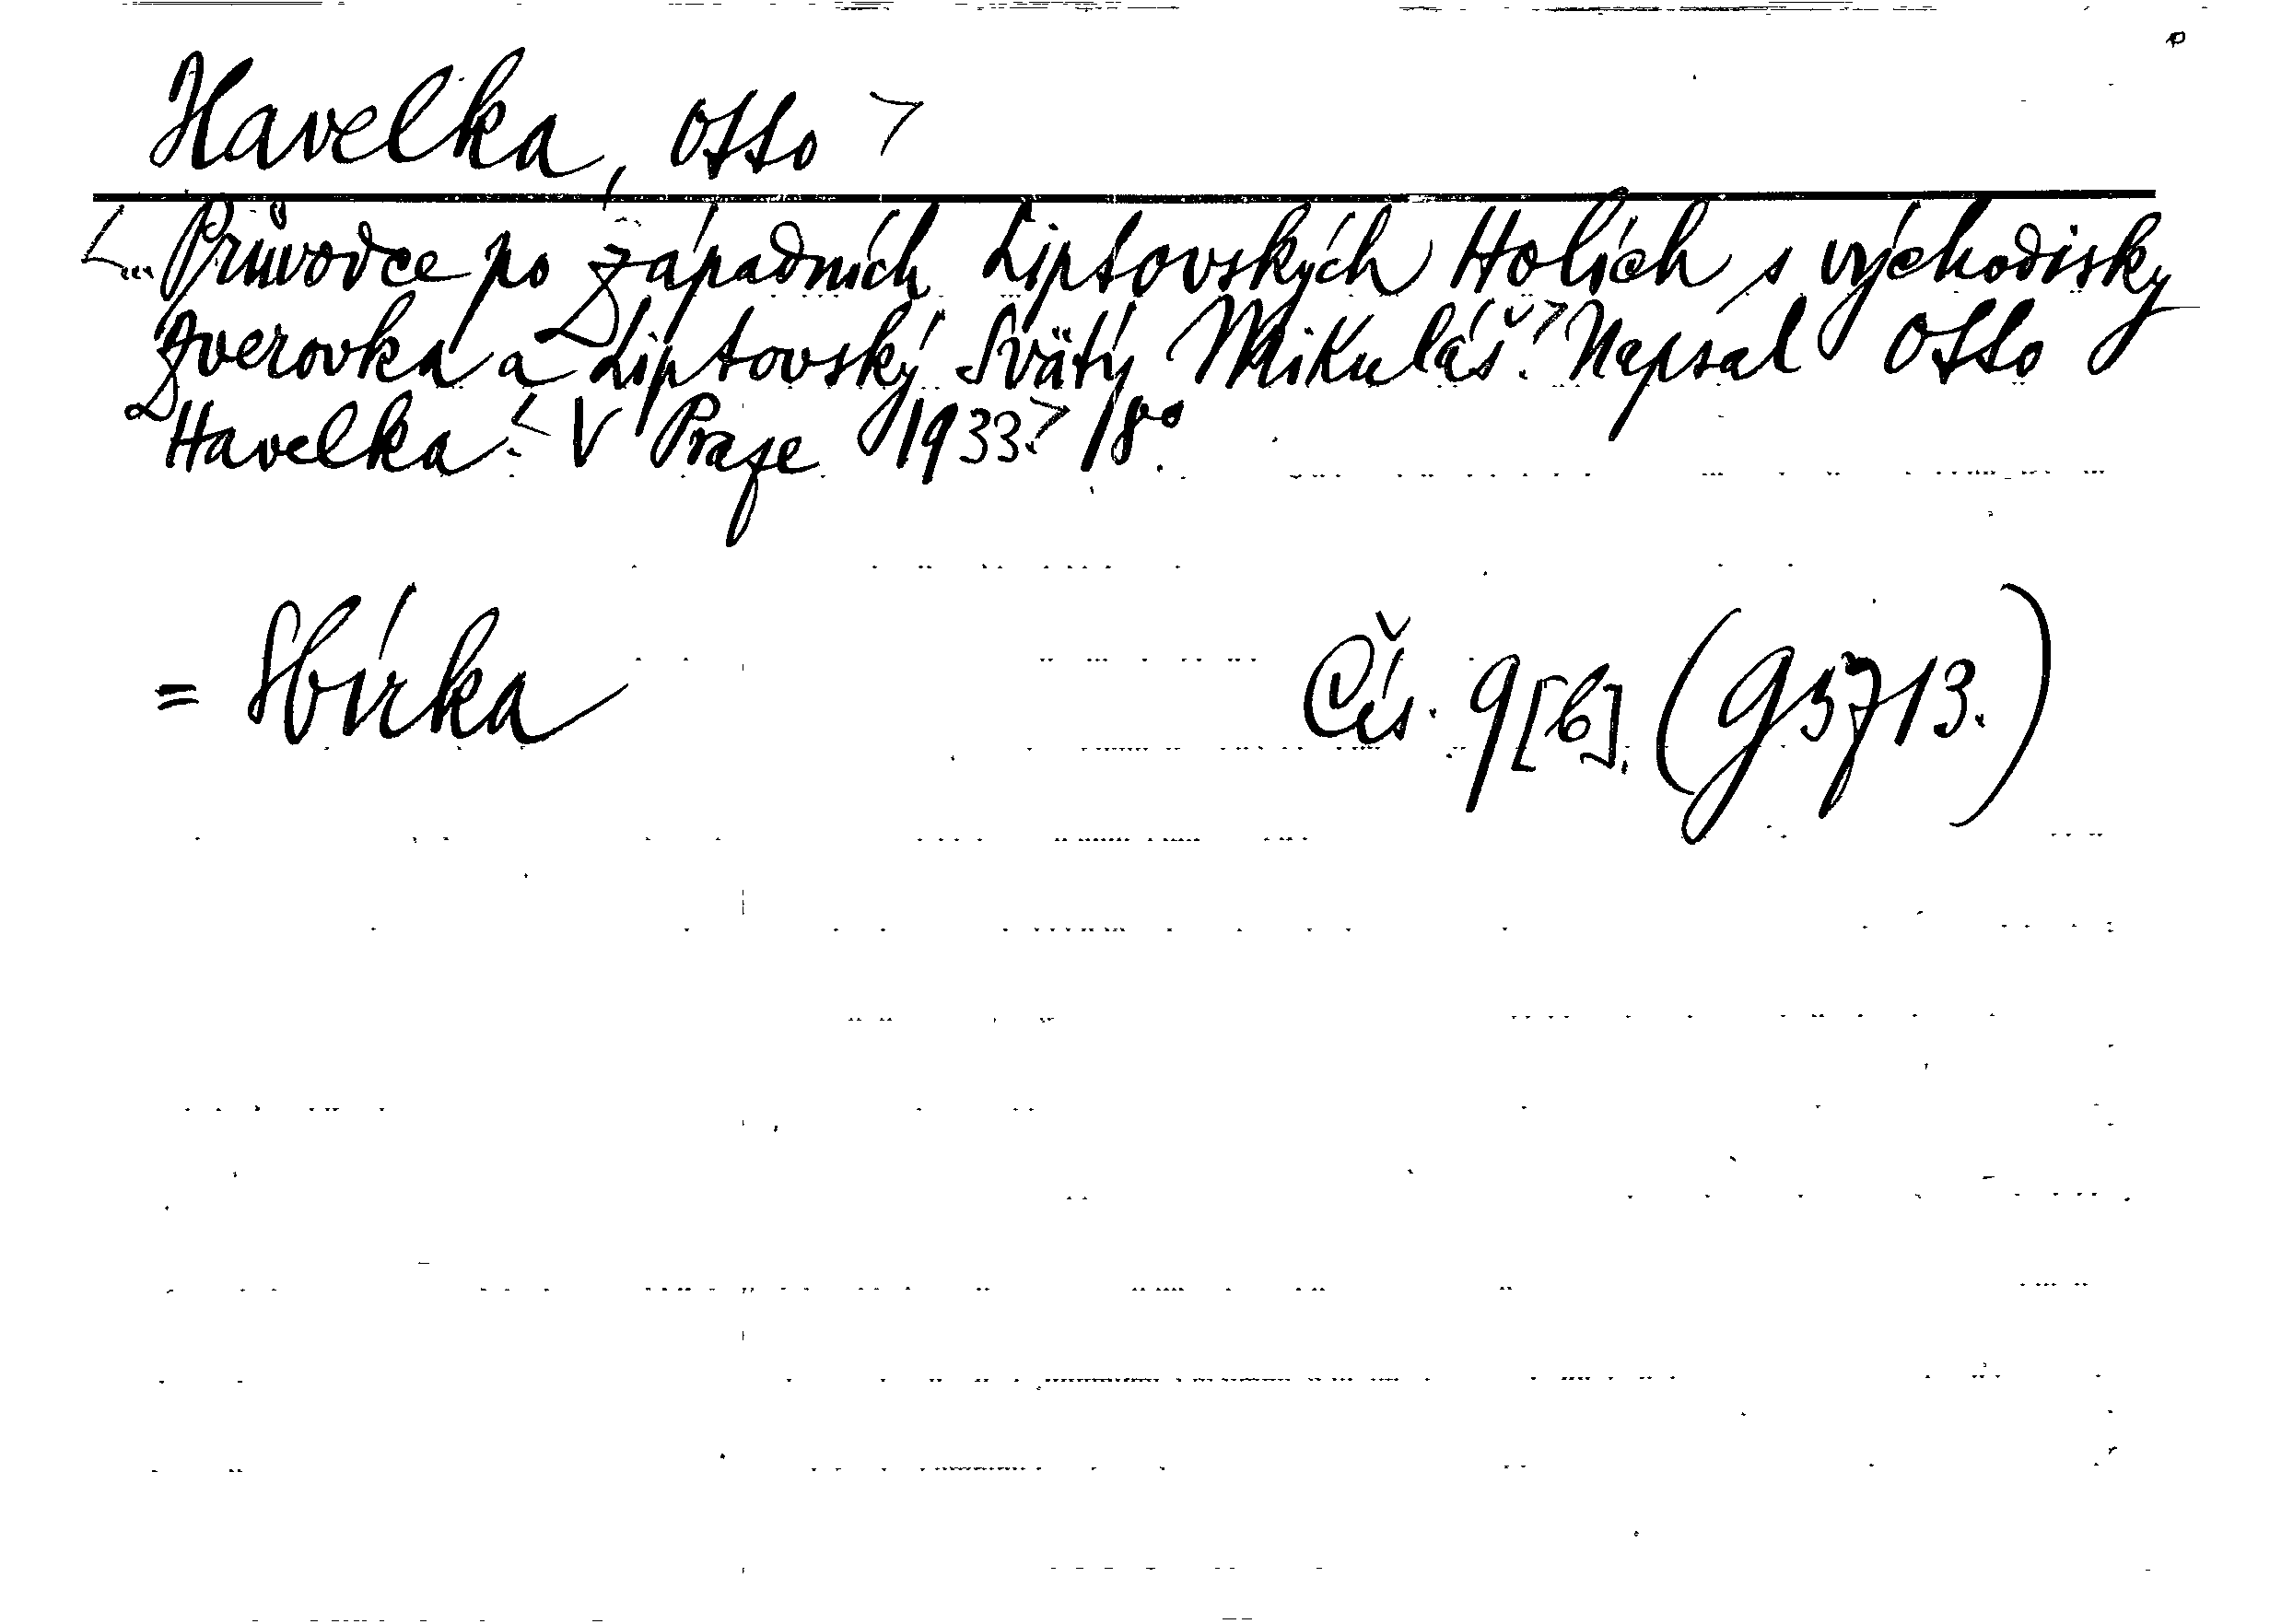 Havelka, Otto >
<... Průvodce po západních Liptovských Holích s východisky
Zverovka a Liptovský Svätý Mikuláš.> Napsal Otto
Havelka. < V Praze 1933.> 8°.
= Sbírka Čís. 9[b]. (g 5713.)